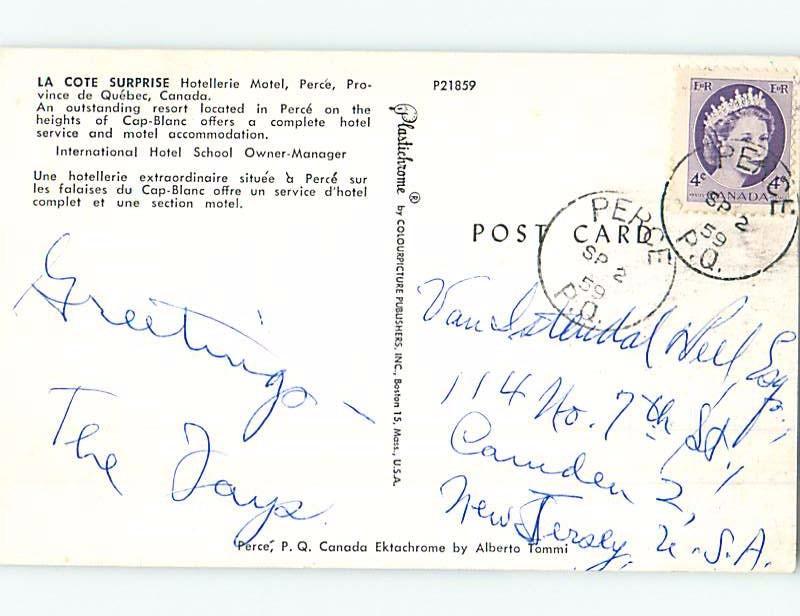 LA COTE SURPRISE Hotellerie Motel, Percé, Pro-
vince de Québec, Canada.
An outstanding resort located in Percé on the
heights of Cap-Blanc offers a complete hotel
service and motel accommodation.
International Hotel School Owner-Manager
Une hotellerie extraordinaire située à Percé sur
les falaises du Cap-Blanc offre un service d'hotel
complet et une section motel.
Greetings -
The Jays
P21859
Plastichrome ® by COLOURPICTURE PUBLISHERS, INC., Boston 15, Mass., U.S.A.
POST CARD
E R E R
4¢ 4¢
CANADA
PERCE
SP 2
59
P.Q.
PERCE
SP 2
59
P.Q.
Van Esq.,
114 No. 7th St.,
Camden 2,
New Jersey, U.S.A.
Percé, P. Q. Canada Ektachrome by Alberto Tommi